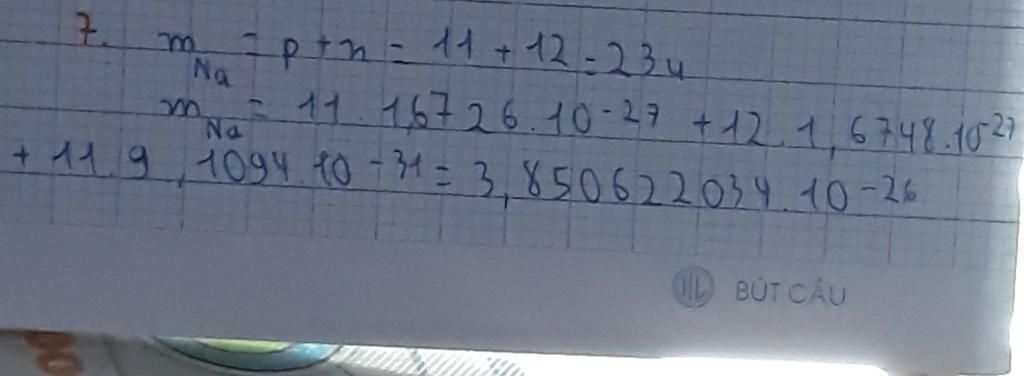 7. m Na = p + n = 11 + 12 = 23u
m Na = 11 . 1,6726 . 10-27 + 12 . 1,6748 . 10-27
+ 11 . 9,1094 . 10-31 = 3,850622034 . 10-26
HL BÚT CÂU